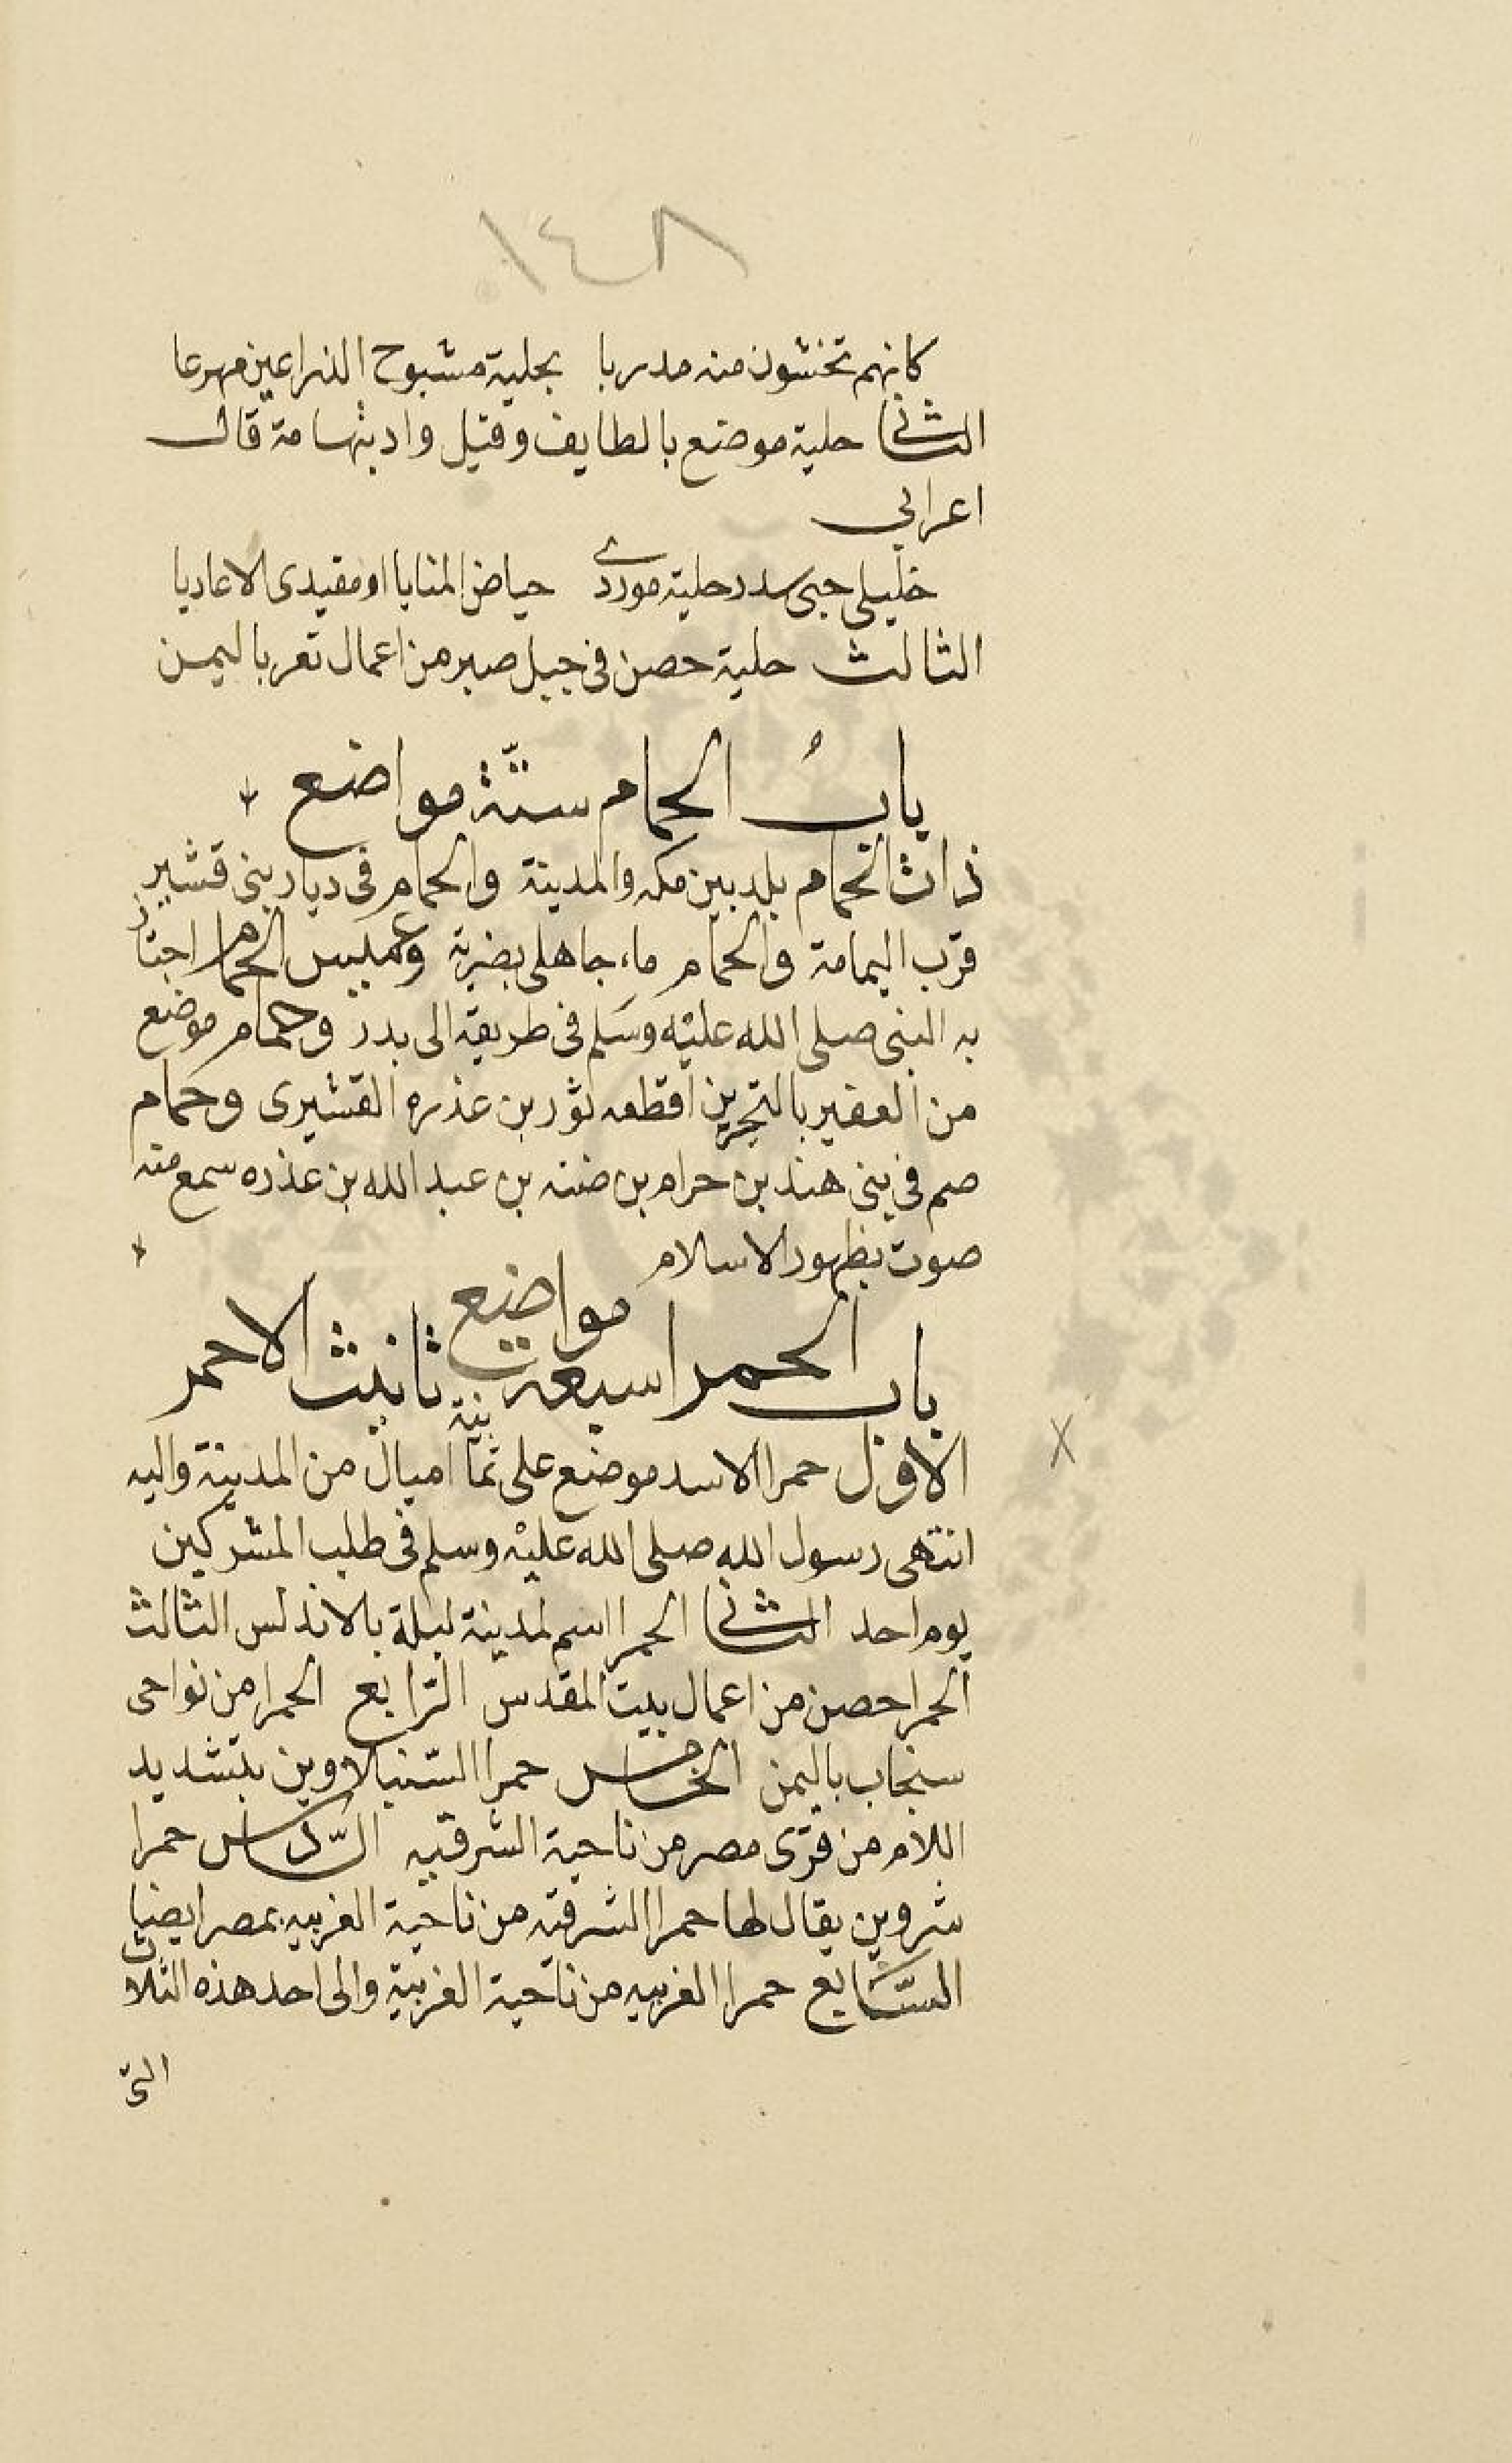 ١٤٨
كانهم تخشون منه مدربا بحلية مشبوح الذراعين مهرعا
الثانى حلية موضع بالطايف وقيل واد بتهامة قال
اعرابي
خليلى حبى سدر حلية موردى حياض المنايا او مقيدى الاعاديا
الثالث حلية حصن فى جبل صبر من اعمال تعز باليمن
باب الحمام ستة مواضع
ذات الحمام بلد بين مكه والمدينة والحمام فى ديار بنى قشير
قرب اليمامة والحمام ماء جاهلى بضرية وعميس الحمام اجتاز
به النبى صلى الله عليه وسلم فى طريقه الى بدر وحمام موضع
من العقير بالبحرين اقطعه لثور بن عذره القشيرى وحمام
صم فى بنى هند بن حرام بن ضنه بن عبد الله بن عذره سمع منه
صوت بظهور الاسلام
باب الحمرا سبعة مواضع تانيث الاحمر
الاول حمرا الاسد موضع على ثمانية اميال من المدينة واليه
انتهى رسول الله صلى الله عليه وسلم فى طلب المشركين
يوم احد الثانى الحمرا اسم لمدينة لبلة بالاندلس الثالث
الحمرا حصن من اعمال بيت المقدس الرابع الحمرا من نواحى
سنجاب باليمن الخامس حمرا السنبلاوين بتشديد
اللام من قرى مصر من ناحية الشرقيه السادس حمرا
شروين يقال لها حمرا الشرقيه من ناحية الغربيه بمصر ايضا
السابع حمرا الغربيه من ناحية الغربية والى احد هذه الثلاث
التى